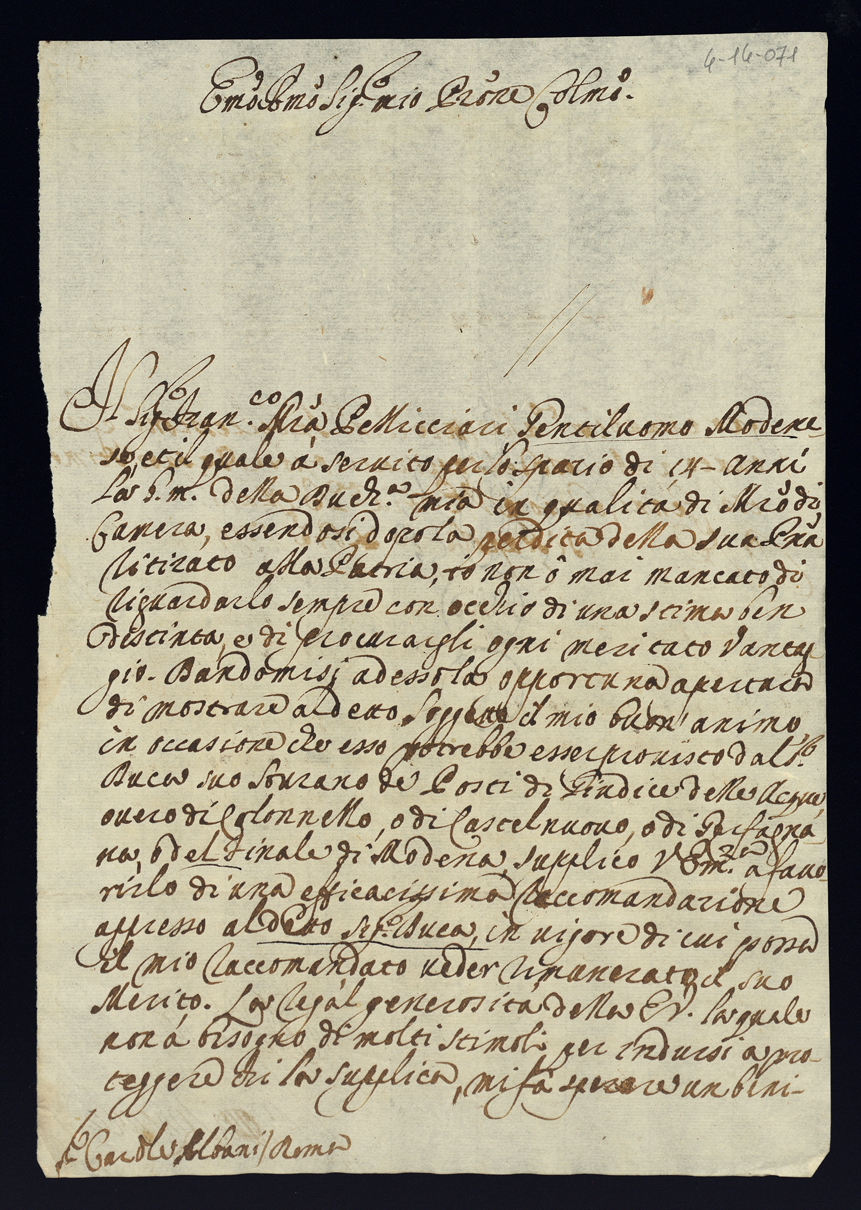 4-14-071
Emõ Rmõ Sig.r mio Prõne Colmõ.
Il Sig.r Fran.co Mrã Pellicciari Gentiluomo Modene-
se, il quale á servito per lo spazio di 14 Anni
la b.m. della Duch.a mia in qualità di Mrõ di
Camera, essendosi dopo la perdita della sua Prña
ritirato alla Patria, io non ô mai mancato di
riguardarlo sempre con occhio di una stima ben
distinta, e di procurargli ogni meritato vantag
gio. Dandomisj adesso la opportuna apertura
di mostrare al detto Soggetto il mio buon' animo
in occasione che esso potrebbe esser provisto dal S.r
Duca suo Sovrano de Posti di Giudice delle Acque,
overo di Colonnello, o di Castelnuovo, o di Garfagna
na, o del Finale di Modena, supplico V. Em.za a favo
rirlo di una efficacissima raccomandazione
appresso al detto Sig.r Duca, in vigore di cui possa
il mio raccomandato veder rimunerato il suo
Merito. La regal generosità della E.V. la quale
non á bisogno di molti stimoli per indursi a pro-
teggere chi la supplica, mi fà sperare un beni-
S.r Card.le Albani / Roma